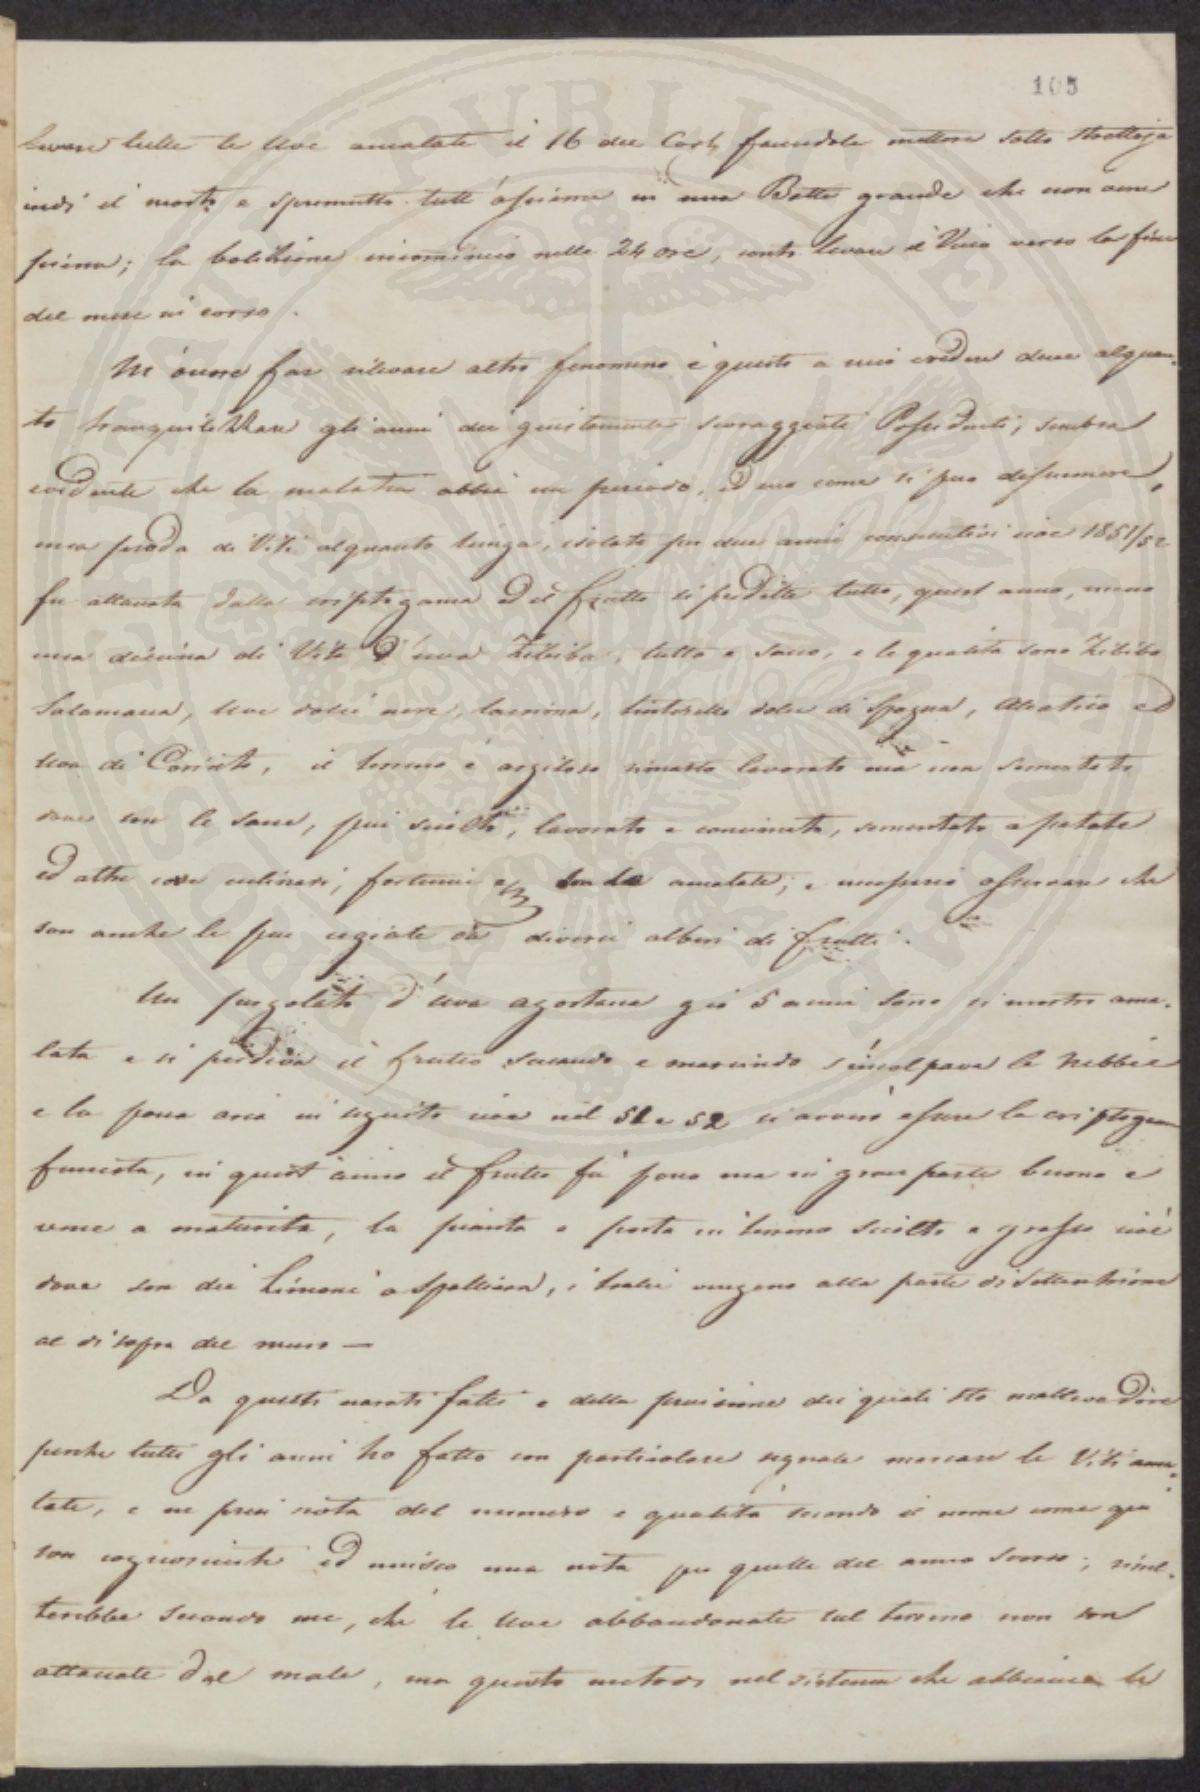 105
levare tutte le Uve amalate il 16 del Cort. facendole mettere sotto strettoja
indi il mosto e spremutto tutt'assieme in una Botte grande che non avea
prima; la bolizione incominciò nelle 24 ore, conto levare il Vino verso la fine
del mese in corso.
M'ocore far rilevare altro fenomeno e questo a mio credere deve alquan-
to tranquilizzare gli animi dei giustamente scoraggiati Possidenti; sembra
evidente che la malatia abbia un periodo, ed ecco come si puo desumere,
una proda di Viti alquanto lunga, isolata per due anni consecutivi cioe 1851/52
fu attacata dalla criptogama ed il frutto si perdette tutto, quest anno, meno
una diecina di Viti d'uva Zibibo, tutto e sano, e le qualità sono Zibibo
Salamana, Uve dolci nere, tintorello dolce di Spagna, Aleatico ed
uva di Corinto, il terreno è argiloso rimasto lavorato ma non sementato
dove son le sane, piu sciolto, lavorato e concimato, sementato a patate
ed altre cose culinari, son le amalate; e necessario osservare che
son anche le piu ugiate da diversi alberi di frutti.
Un pergolato d'uva agostana gia 5 anni sono si mostrò ama-
lata e si perdeva il frutto secando e marcindo s'incolpava le nebbie
e la poca aria in seguito cioe nel 51 e 52 si avvisò essere la criptogama
funesta, in quest'anno il frutto fù poco ma in gran parte buono e
vene a maturita, la pianta e posta in terreno sciolto e grasso cioè
dove son dei Limoni a Spalliera, i tralci vengono alla parte di settentrione
al di sopra del muro —
Da questi narati fatti e della precisione dei quali sto mallevadore
perche tutti gli anni ho fatto con particolare segnale marcare le Viti ama-
late, e ne presi nota del numero e qualità secondo il nome come qui
son cognosciute ed unisco una nota per quelle del anno scorso; risul-
terebbe secondo me, che le Uve abbandonate sul terreno non son
attacate dal male, ma questo metodo nel sistema che abbiamo le